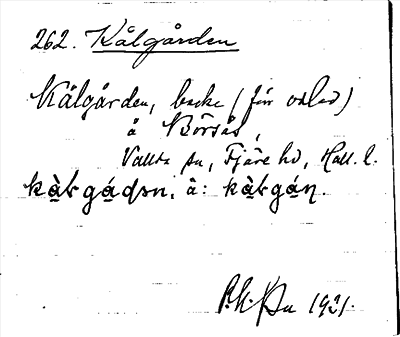 262. Kålgården
Kålgården, backe (för odlad)
å Börsås,
Vallda sn, Fjäre hd, Hall. l.
kàḷgáḍən, å: kàḷgáṇ.
1921.